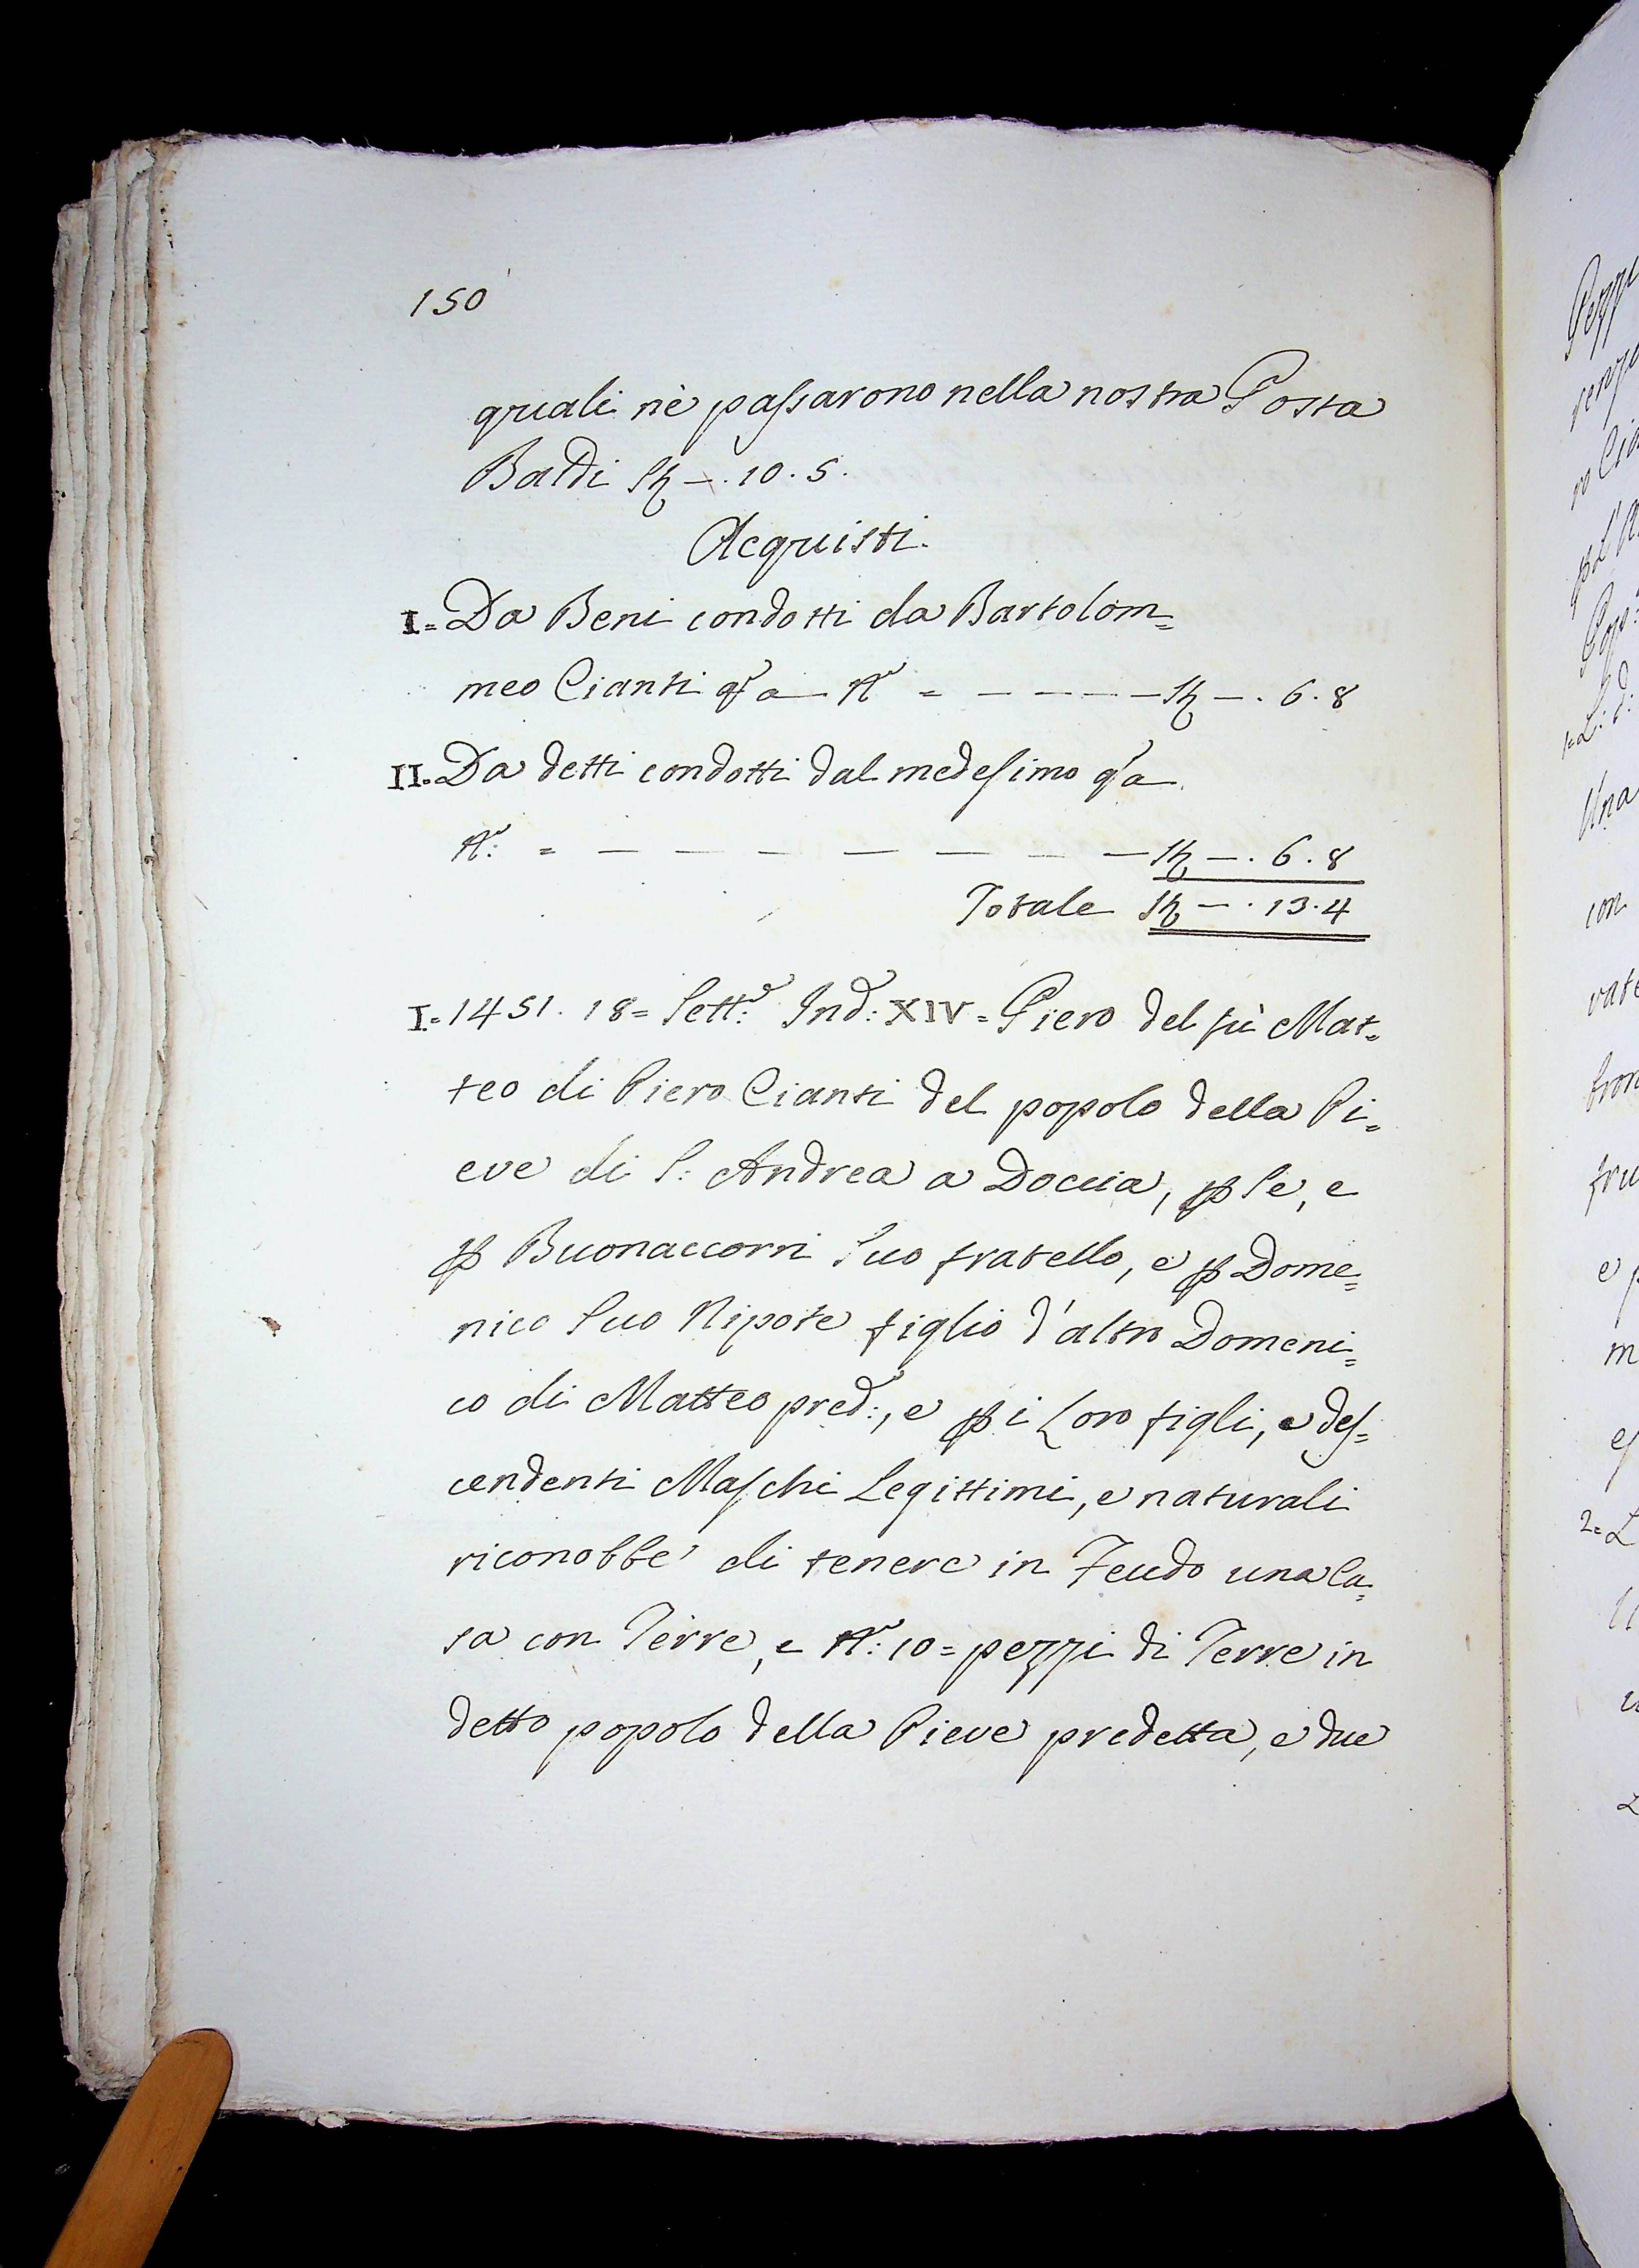 150
quali nè passarono nella nostra Posta
Baldi St. —. 10. 5.
Acquisti.
I= Da Beni condotti da Bartolom=
meo Cianti qta N.o = — — — — St. —. 6. 8
II= Da detti condotti dal medesimo qta
N.o: = — — — — — — — St. —. 6. 8
Totale St. —. 13. 4
I= 1451. 18= Sett.e: Ind: XIV= Piero del fù Mat=
teo di Piero Cianti del popolo della Pi=
eve di S: Andrea a Doccia, p Se, e
p Buonaccorri Suo fratello, e p Dome=
nico Suo Nipote figlio d'altro Domeni=
co di Matteo pred:, e p i Loro figli, e des=
cendenti Maschi Legittimi, e naturali
riconobbe di tenere in Feudo una Ca=
sa con Terre, e N.o: 10= pezzi di Terre in
detto popolo della Pieve predetta, e due